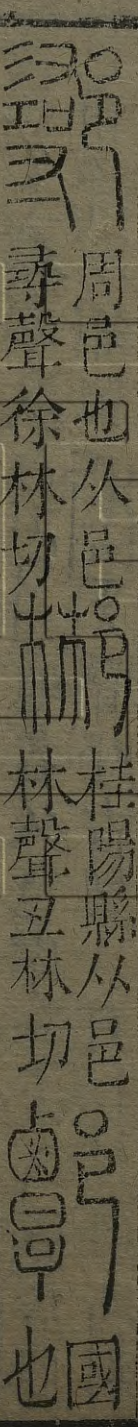 鄩周邑也从邑
尋聲徐林切
郴桂陽縣从邑
林聲丑林切
國
也